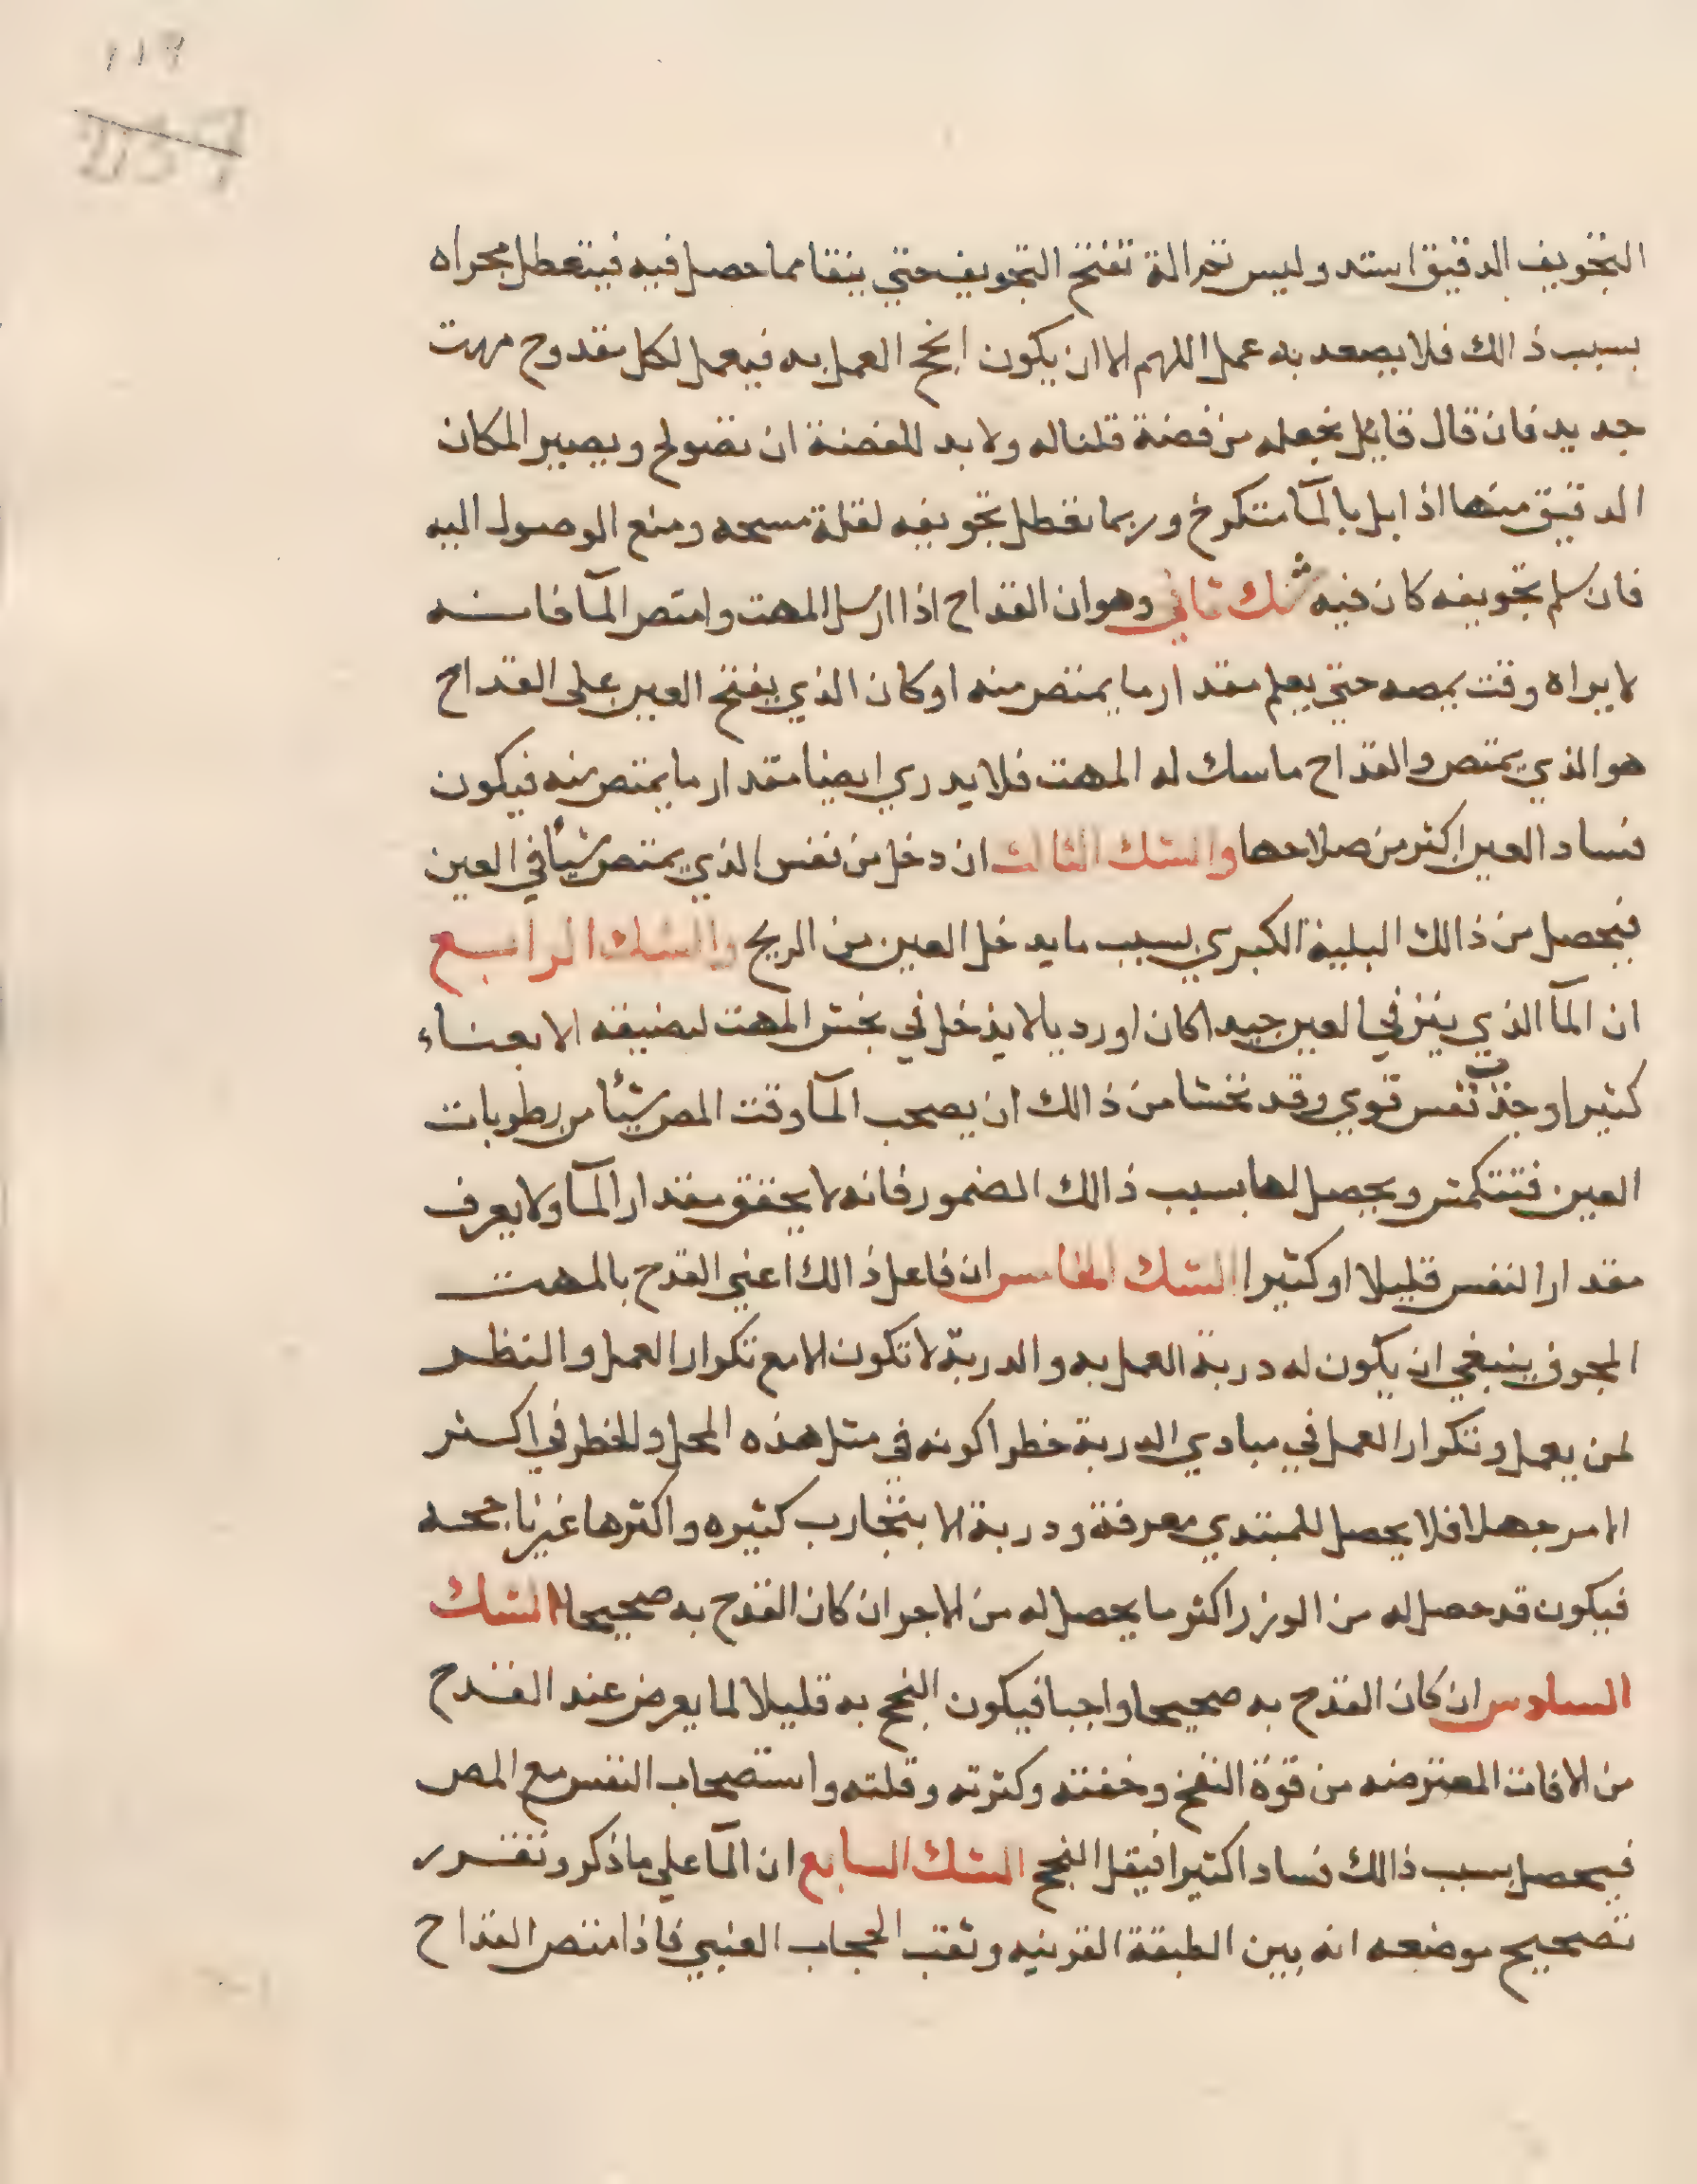 ١١٩
التجويف الدقيق استد وليس ثم الة تفتح التجويف حتي ينقا مما حصل فيه فيتعطل مجراه
بسبب ذالك فلا يصعد به عمل اللهم الا ان يكون انجح العمل به فيعمل لكل مقدوح مهت
جديد فان قال قايل نجعله من فضة قلنا له ولا بد للفضة ان تضولح ويصير المكان
الدقيق منها اذا بل بالمآ متكرخ وربما تعطل تجويفه لقلة مسحه ومنع الوصول اليه
فان سلم تجويفه كان فيه شك ثاني وهو ان القداح اذا ارسل المهت وامتص المآ فانه
لا يراه وقت يمصه حتي يعلم مقدار ما يمتص منه او كان الذي يفتح العين علي القداح
هو الذي يمتص والقداح ماسك له المهت فلا يدري ايضا مقدار ما يمتص منه فيكون
فساد العين اكثر من صلاحها والشك الثالث ان دخل من نفس الذي يمتص شيأ في العين
فيحصل من ذالك البلية الكبري بسبب ما يدخل العين من الريح والشك الرابع
ان المآ الذي ينزف في العين جيدا كان او رديا لا يدخل في بخش المهت لضيقه الا بعناء
كثير او جذب نفس قوي وقد نخشا من ذالك ان يصحب المآ وقت المص شيأ من رطوبات
العين فتتكمش ويحصل لها بسبب ذالك الضمور فانه لا يحقق مقدار المآ ولا يعرف
مقدار النفس قليلا او كثيرا الشك الخامس ان فاعل ذالك اعني القدح بالمهت
المجوف ينبغي ان يكون له دربة العمل به والدربة لا تكون الا مع تكرار العمل والنظر
لمن يعمل وتكرار العمل في مبادي الدربة خطرا كونه في مثل هذه المحل والخطر في اكثر
الامر جهلا فلا يحصل للمبتدي معرفة ودربة الا بتجارب كثيره واكثرها غير ناجحه
فيكون قد حصل له من الوزر اكثر ما يحصل له من الاجر ان كان القدح به صحيحا الشك
السادس ان كان القدح به صحيحا واجبا فيكون النجح به قليلا لما يعرض عند القدح
من الافات المعترضه من قوة النفخ وخفته وكثرته وقلته واستصحاب النفس مع المص
فيحصل بسبب ذالك فسادا كثيرا فيقل النجح الشك السابع ان المآ علي ما ذكر وتقرر
تصحيح موضعه انه بين الطبقة القرنيه وثقب الحجاب العنبي فاذا متص القداح